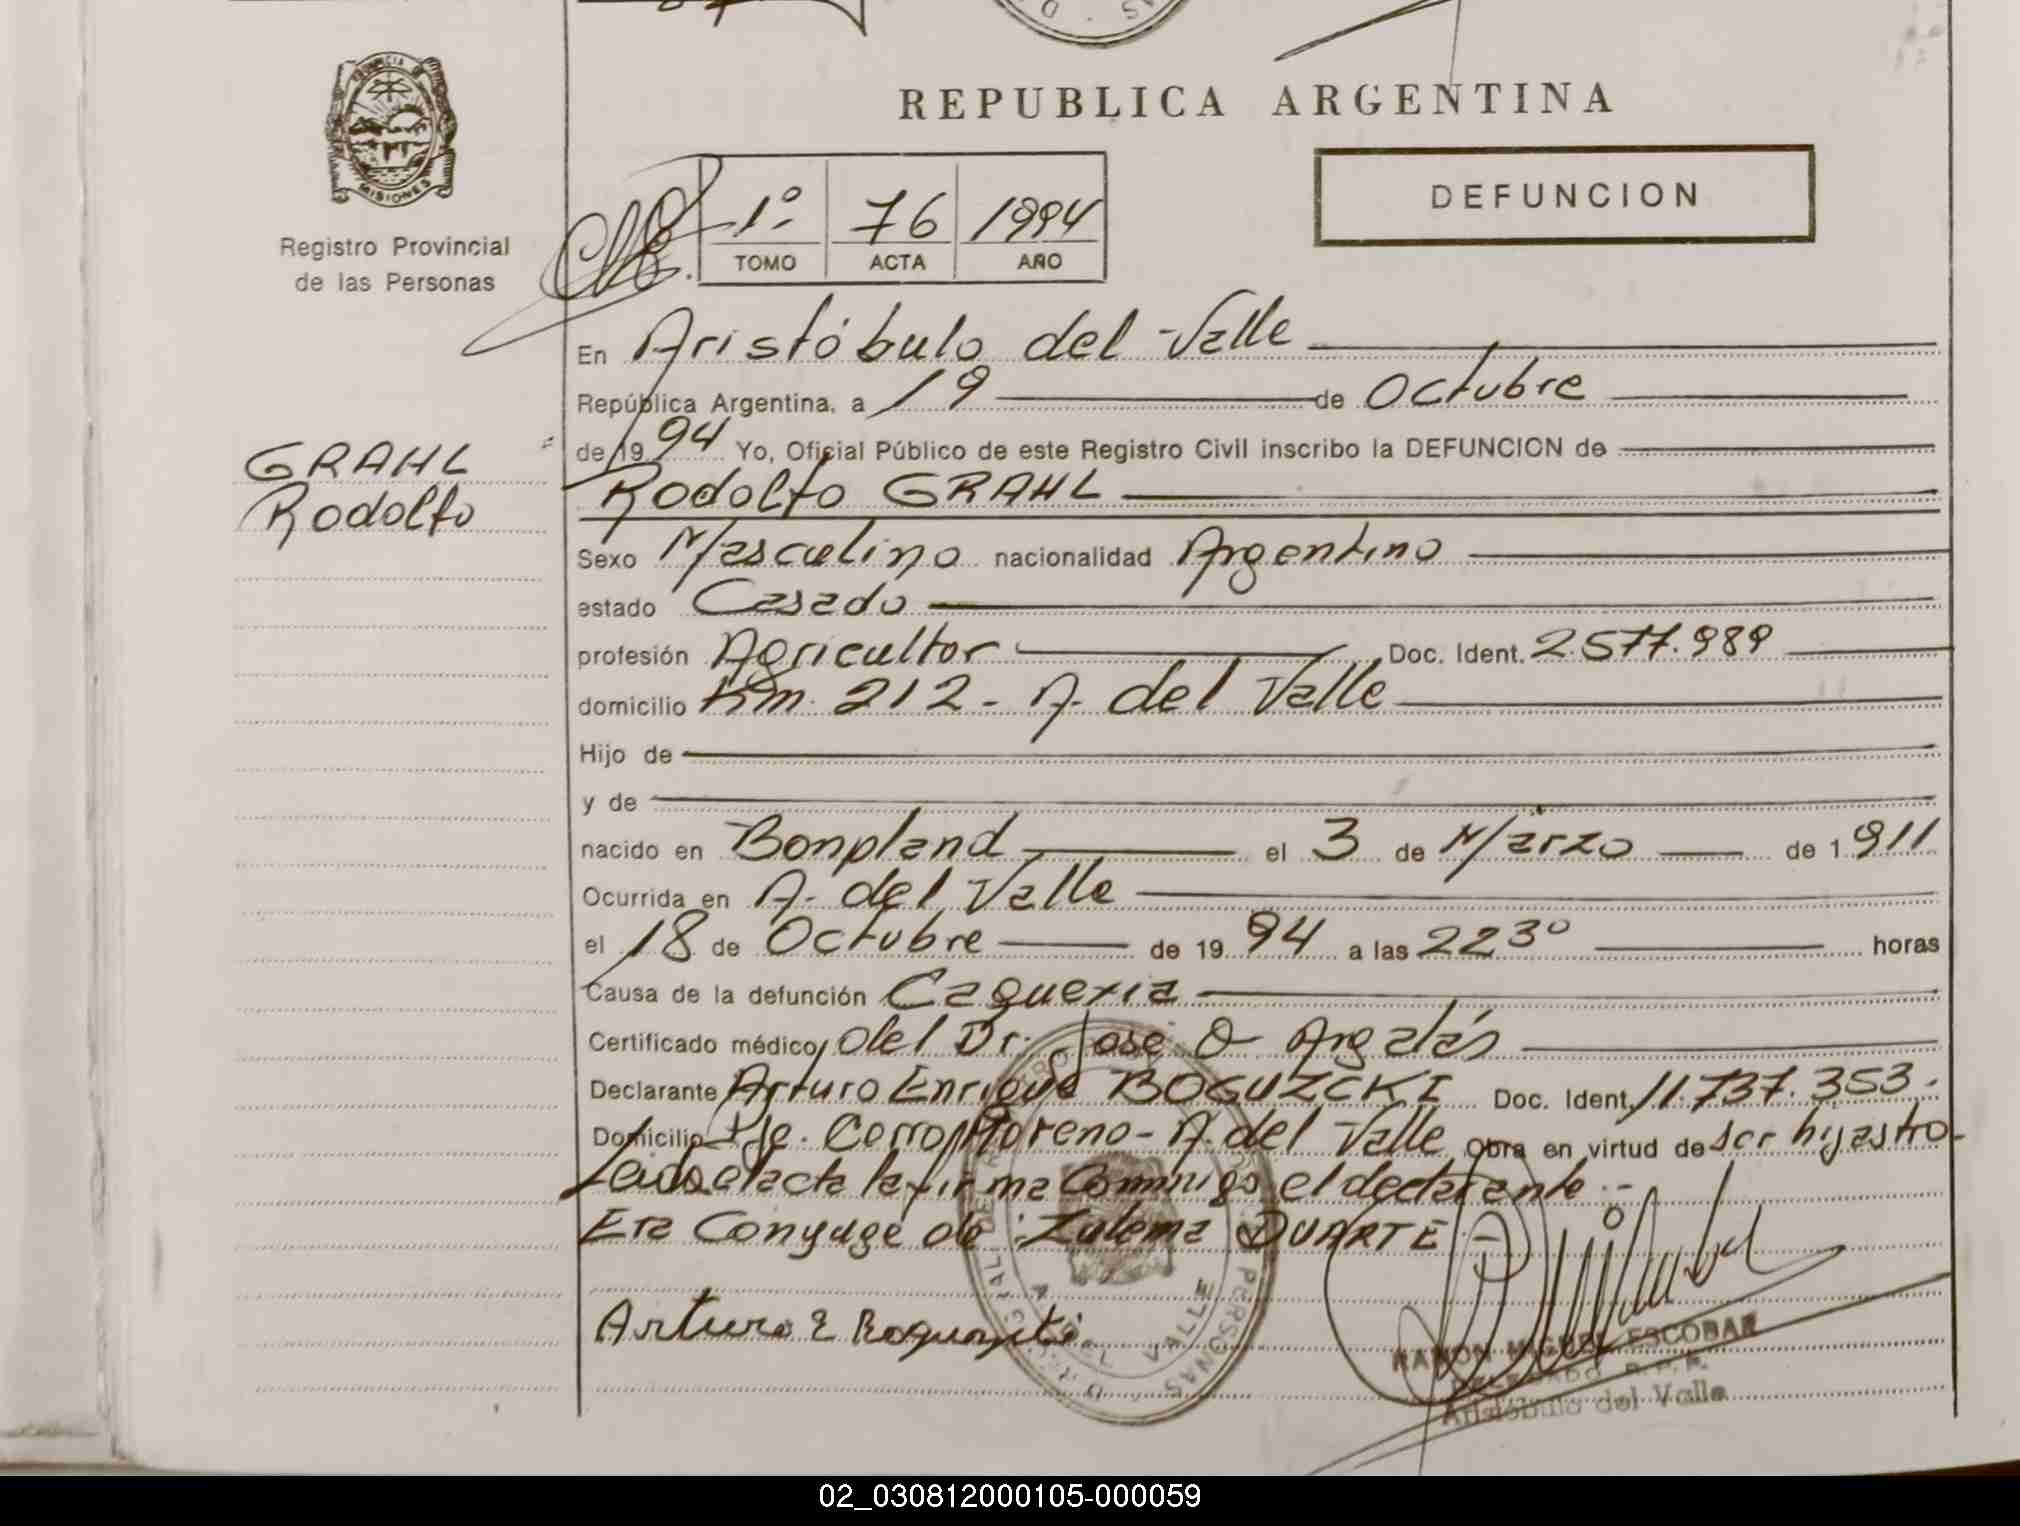 REPUBLICA ARGENTINA
PROVINCIA DE
MISIONES
Registro Provincial
de las Personas
1º 76 1994
TOMO ACTA AÑO
DEFUNCION
En Aristóbulo del Valle
República Argentina, a 19 de Octubre
de 19 94 Yo, Oficial Público de este Registro Civil inscribo la DEFUNCION de
GRAHL
Rodolfo
Rodolfo GRAHL
Sexo Masculino nacionalidad Argentino
estado Casado
profesión Agricultor Doc. Ident. 2.577.989
domicilio Km. 212 - A. del Valle
Hijo de
y de
nacido en Bonpland el 3 de Marzo de 1911
Ocurrida en A. del Valle
el 18 de Octubre de 19 94 a las 22 30 horas
Causa de la defunción Caquexia
Certificado médico del Dr. Jose O Argalás
Declarante Arturo Enrique BOGUZCKI Doc. Ident. 11.737.353.
Domicilio Pje. Cerro Moreno - A. del Valle Obra en virtud de ser hijastro-
Leida el acta la firma Conmigo el declarante.-
Era Conyuge de: Zulema DUARTE.-
Arturo E
RAMON MIGUEL ESCOBAR
DELEGADO R.P.P.
Aristóbulo del Valle
A. DEL VALLE
02_030812000105-000059